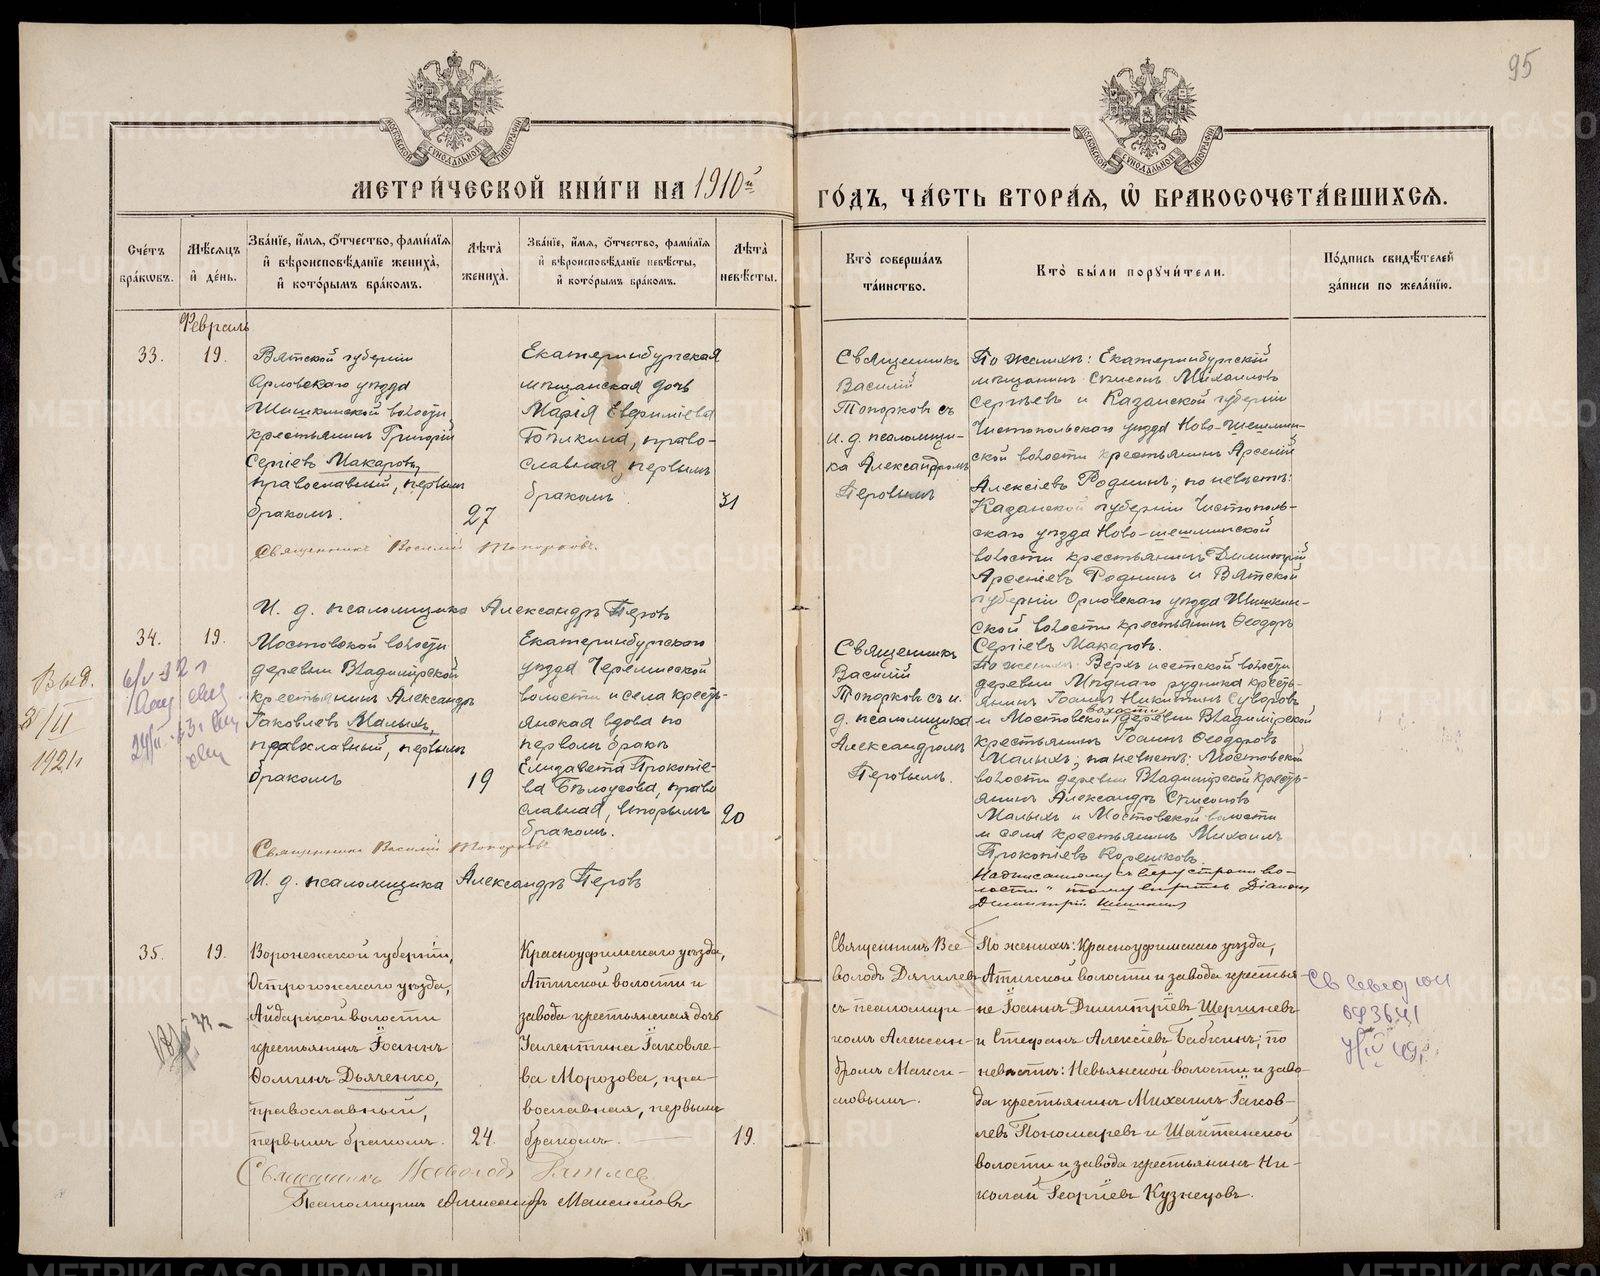 95
МОСКОВСКОЙ СѴНОДАЛЬНОЙ ТИПОГРАФІИ
МОСКОВСКОЙ СѴНОДАЛЬНОЙ ТИПОГРАФІИ
МЕТРИ́ЧЕСКОЙ КНИ́ГИ НА 1910й
ГО́ДЪ, ЧА́СТЬ ВТОРА́Я, Ѽ БРАКОСОЧЕТА́ВШИХСЯ.
Сче́тъ бра́кѡвъ.
Мѣ́сяцъ и́ де́нь.
Зва́нїе, и́мя, ѻ́тчество, фами́лїя и́ вѣроисповѣ́данїе жениха̀, и́ кото́рымъ бра́комъ.
Лѣ́та̀ жениха̀.
Зва́нїе, и́мя, ѻ́тчество, фами́лїя и́ вѣроисповѣ́данїе невѣ́сты, и́ кото́рымъ бра́комъ.
Лѣ́та̀ невѣ́сты.
Кто̀ соверша́лъ та́инство.
Кто̀ бы́ли порꙋчи́тели.
По́дпись свидѣ́телей за́писи по жела́нїю.
Февраль
33.
19.
Вятской губерніи
Орловскаго уѣзда
Шишкинской волости,
крестьянинъ Григорій
Сергіевъ Макаровъ,
православный, первымъ
бракомъ.
27
Екатеринбургская
мѣщанская дочь
Марія Евфиміева
Топыкина, право-
славная, первымъ
бракомъ.
31
Священникъ
Василій
Топорковъ съ
и. д. псаломщи-
ка Александромъ
Перовымъ
По женихѣ: Екатеринбургскій
мѣщанинъ Симеонъ Михаиловъ
Сергѣевъ и Казанской губерніи
Чистопольскаго уѣзда Ново-Шешмин-
ской волости крестьянинъ Арсеній
Алексіевъ Роднинъ; по невѣстѣ:
Казанской губерніи Чистополь-
скаго уѣзда Ново-шешминской
волости крестьянинъ Димитрій
Арсеніевъ Роднинъ и Вятской
губерніи Орловскаго уѣзда Шишкин-
ской волости крестьянинъ Ѳеодоръ
Сергіевъ Макаровъ.
Священникъ Василій Топорковъ.
И. д. псаломщика Александръ Перовъ
34.
19.
Выд.
8/II
1921г
Мостовской волости
деревни Владимірской
крестьянинъ Александръ
Іаковлевъ Малыхъ,
православный, первымъ
бракомъ
19
Екатеринбургскаго
уѣзда Черемисской
волости и села кресть-
янская вдова по
первомъ бракѣ
Елизавета Прокопіе-
ва Бѣлоусова, право
славная, вторымъ
бракомъ.
20
Священникъ
Василій
Топорковъ съ и.
д. псаломщика
Александромъ
Перовымъ.
По женихѣ: Верхъ-исетской волости
деревни Мѣднаго рудника кресть-
янинъ Іоаннъ Никитинъ Суворовъ
и Мостовской волости деревни Владимірской
крестьянинъ Іоаннъ Ѳеодоровъ
Малыхъ; по невѣстѣ: Мостовской
волости деревни Владимірской кресть-
янинъ Александръ Симеоновъ
Малыхъ и Мостовской волости
и села крестьянинъ Михаилъ
Прокопіевъ Корешковъ.
Надписанному сверху строки во-
лости" тому вѣрить Діаконъ
Димитрій Шишкинъ
Священникъ Василій Топорковъ
И. д. псаломщика Александръ Перовъ
35.
19.
Воронежской губерніи,
Острогожскаго уѣзда,
Айдарской волости
крестьянинъ Іоаннъ
Ѳоминъ Дьяченко,
православный,
первымъ бракомъ.
24.
Красноуфимскаго уѣзда,
Атигской волости и
завода крестьянская дочь
Валентина Іаковле-
ва Морозова, пра-
вославная, первымъ
бракомъ.
19.
Священникъ Все-
володъ Дягилевъ
съ псаломщи-
комъ Алексан-
дромъ Макси-
мовымъ.
По женихѣ: Красноуфимскаго уѣзда,
Атигской волости и завода крестья-
не Іоаннъ Димитріевъ Шершневъ
и Стефанъ Алексіевъ Бабкинъ; по
невѣстѣ: Невьянской волости и заво-
да крестьянинъ Михаилъ Іаков-
левъ Пономаревъ и Шайтанской
волости и завода крестьянинъ Ни-
колай Георгіевъ Кузнецовъ.
Священникъ Всеволодъ Дягилевъ
Псаломщикъ Александръ Максимовъ
METRIKI.GASO-URAL.RU